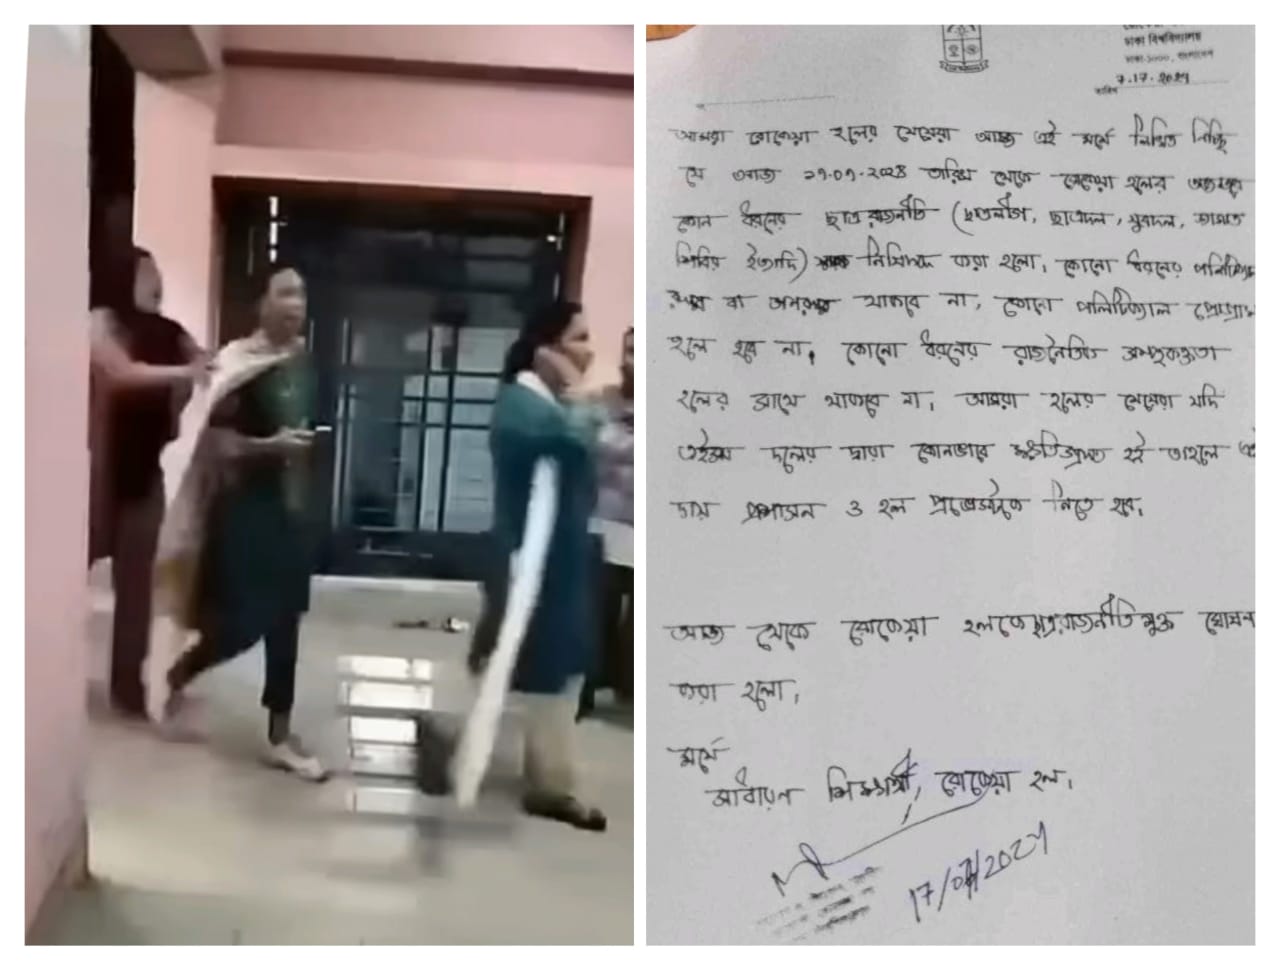 ঢাকা বিশ্ববিদ্যালয়
ঢাকা-১০০০, বাংলাদেশ
তারিখ
আমরা রোকেয়া হলের মেয়েরা আজ এই মর্মে লিখিত নিচ্ছি
যে আজ ১৭-০৭-২০২৪ তারিখ থেকে রোকেয়া হলের অভ্যন্তরে
কোন ধরনের ছাত্ররাজনীতি (ছাত্রলীগ, ছাত্রদল, যুবদল, জামাত
শিবির ইত্যাদি) নিষিদ্ধ করা হলো। কোনো ধরনের পলিটিক্যাল
রুম বা গণরুম থাকবে না, কোনো পলিটিক্যাল প্রোগ্রাম
হলে হবে না। কোনো ধরনের রাজনৈতিক সম্পৃক্ততা
হলের সাথে থাকবে না। আমরা হলের মেয়েরা যদি
এইসব দলের দ্বারা কোনভাবে ক্ষতিগ্রস্ত হই তাহলে এই
দায় প্রশাসন ও হল প্রভোস্টকে নিতে হবে।
আজ থেকে রোকেয়া হলকে ছাত্ররাজনীতিমুক্ত ঘোষনা
করা হলো।
মর্মে
সাধারণ শিক্ষার্থী, রোকেয়া হল।
17/07/2024